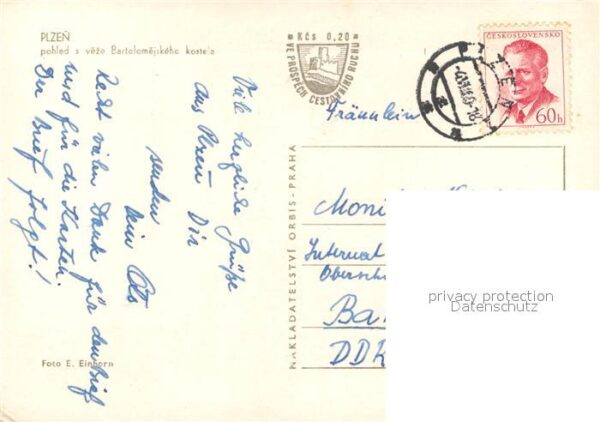 PLZEŇ
pohled s věže Bartolomějského kostela
Kčs 0,20
VE PROSPĚCH CESTOVNÍHO RUCHU
ČESKOSLOVENSKO
60h
PLZEŇ
Viele herzliche Grüße
aus Plzeň Dir
senden
Dein Otto
Recht vielen Dank für den Brief
und für die Karten.
Der Brief folgt!
Fräulein
Moni
Internat
Obersch
Ba
DDR
NAKLADATELSTVÍ ORBIS-PRAHA
Foto E. Einhorn
privacy protection
Datenschutz